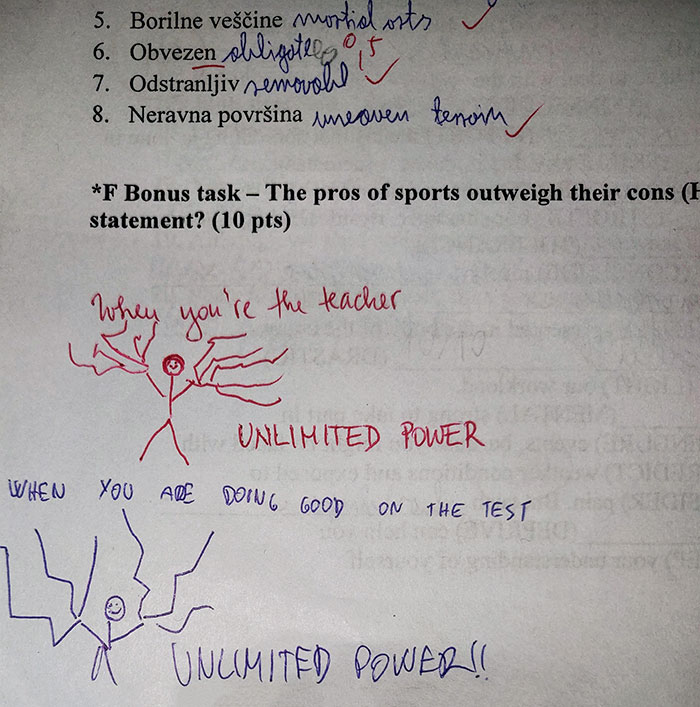 5. Borilne veščine martial arts
6. Obvezen obligate 0,5
7. Odstranljiv removabl
8. Neravna površina uneaven terrain
*F Bonus task – The pros of sports outweigh their cons (H
statement? (10 pts)
When you're the teacher
UNLIMITED POWER
WHEN YOU ARE DOING GOOD ON THE TEST
UNLIMITED POWER!!